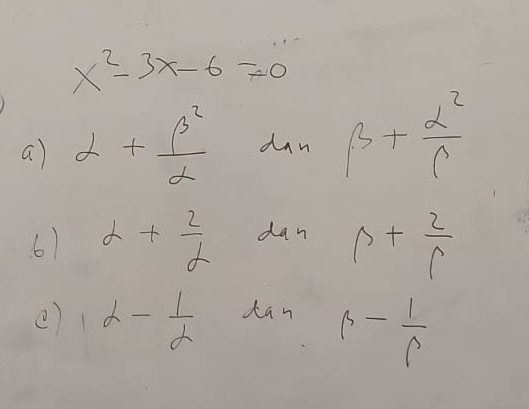 x² - 3x - 6 = 0
a) α + β²/α dan β + α²/β
b) α + 2/α dan β + 2/β
c) α - 1/α dan β - 1/β